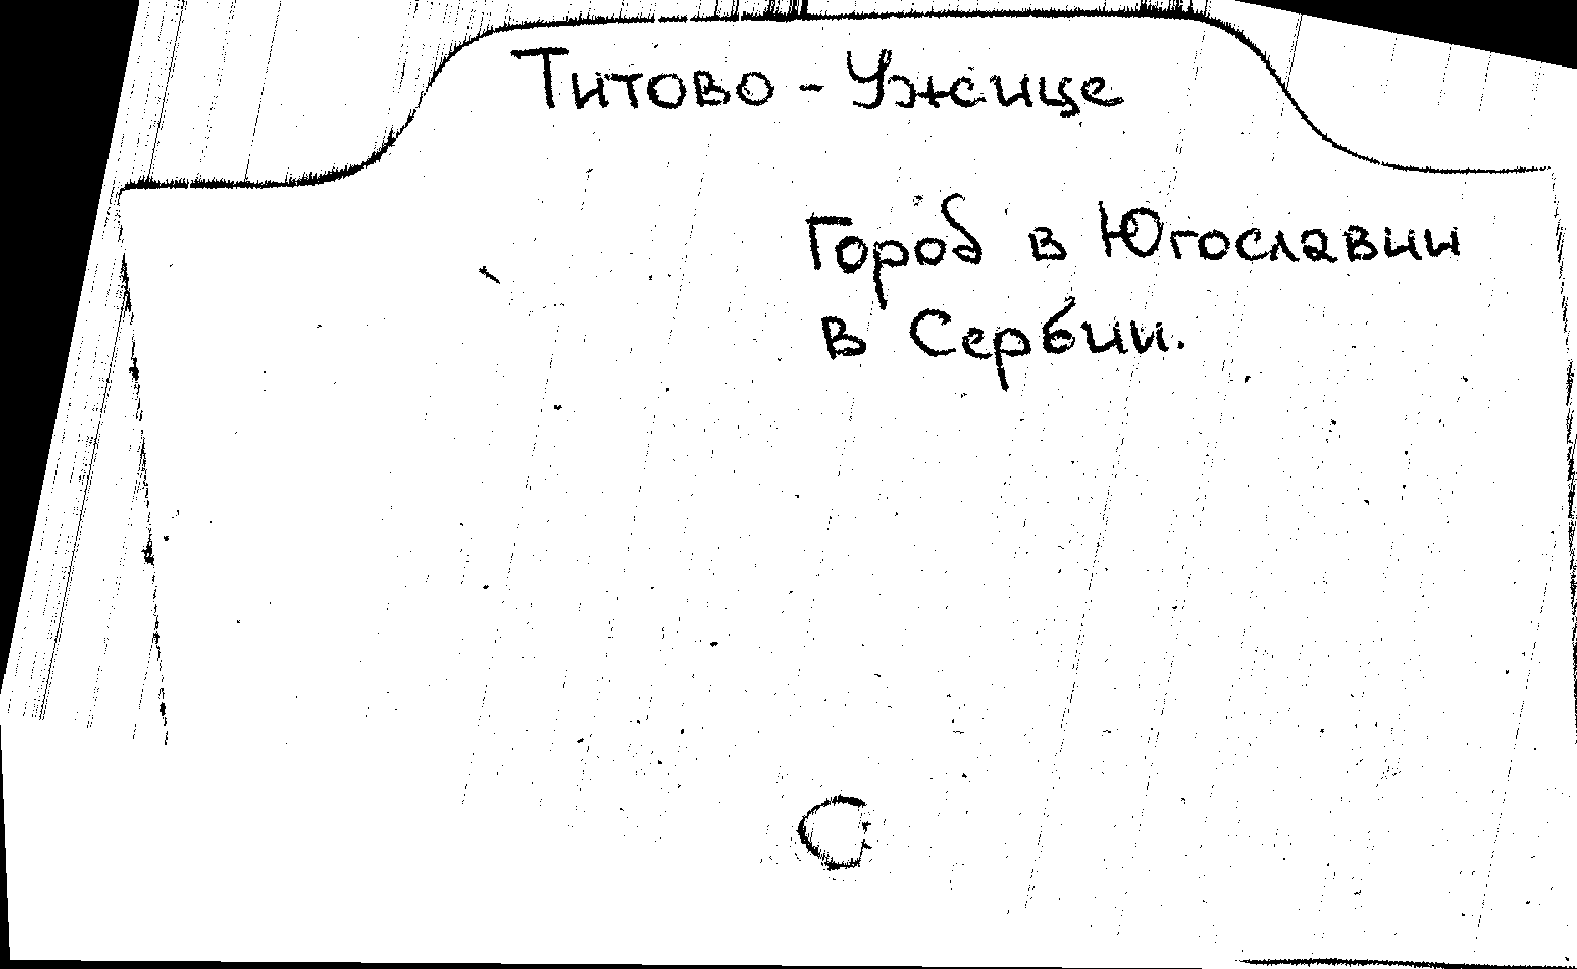 Титово - Ужице
Город в Югославии
в Сербии.